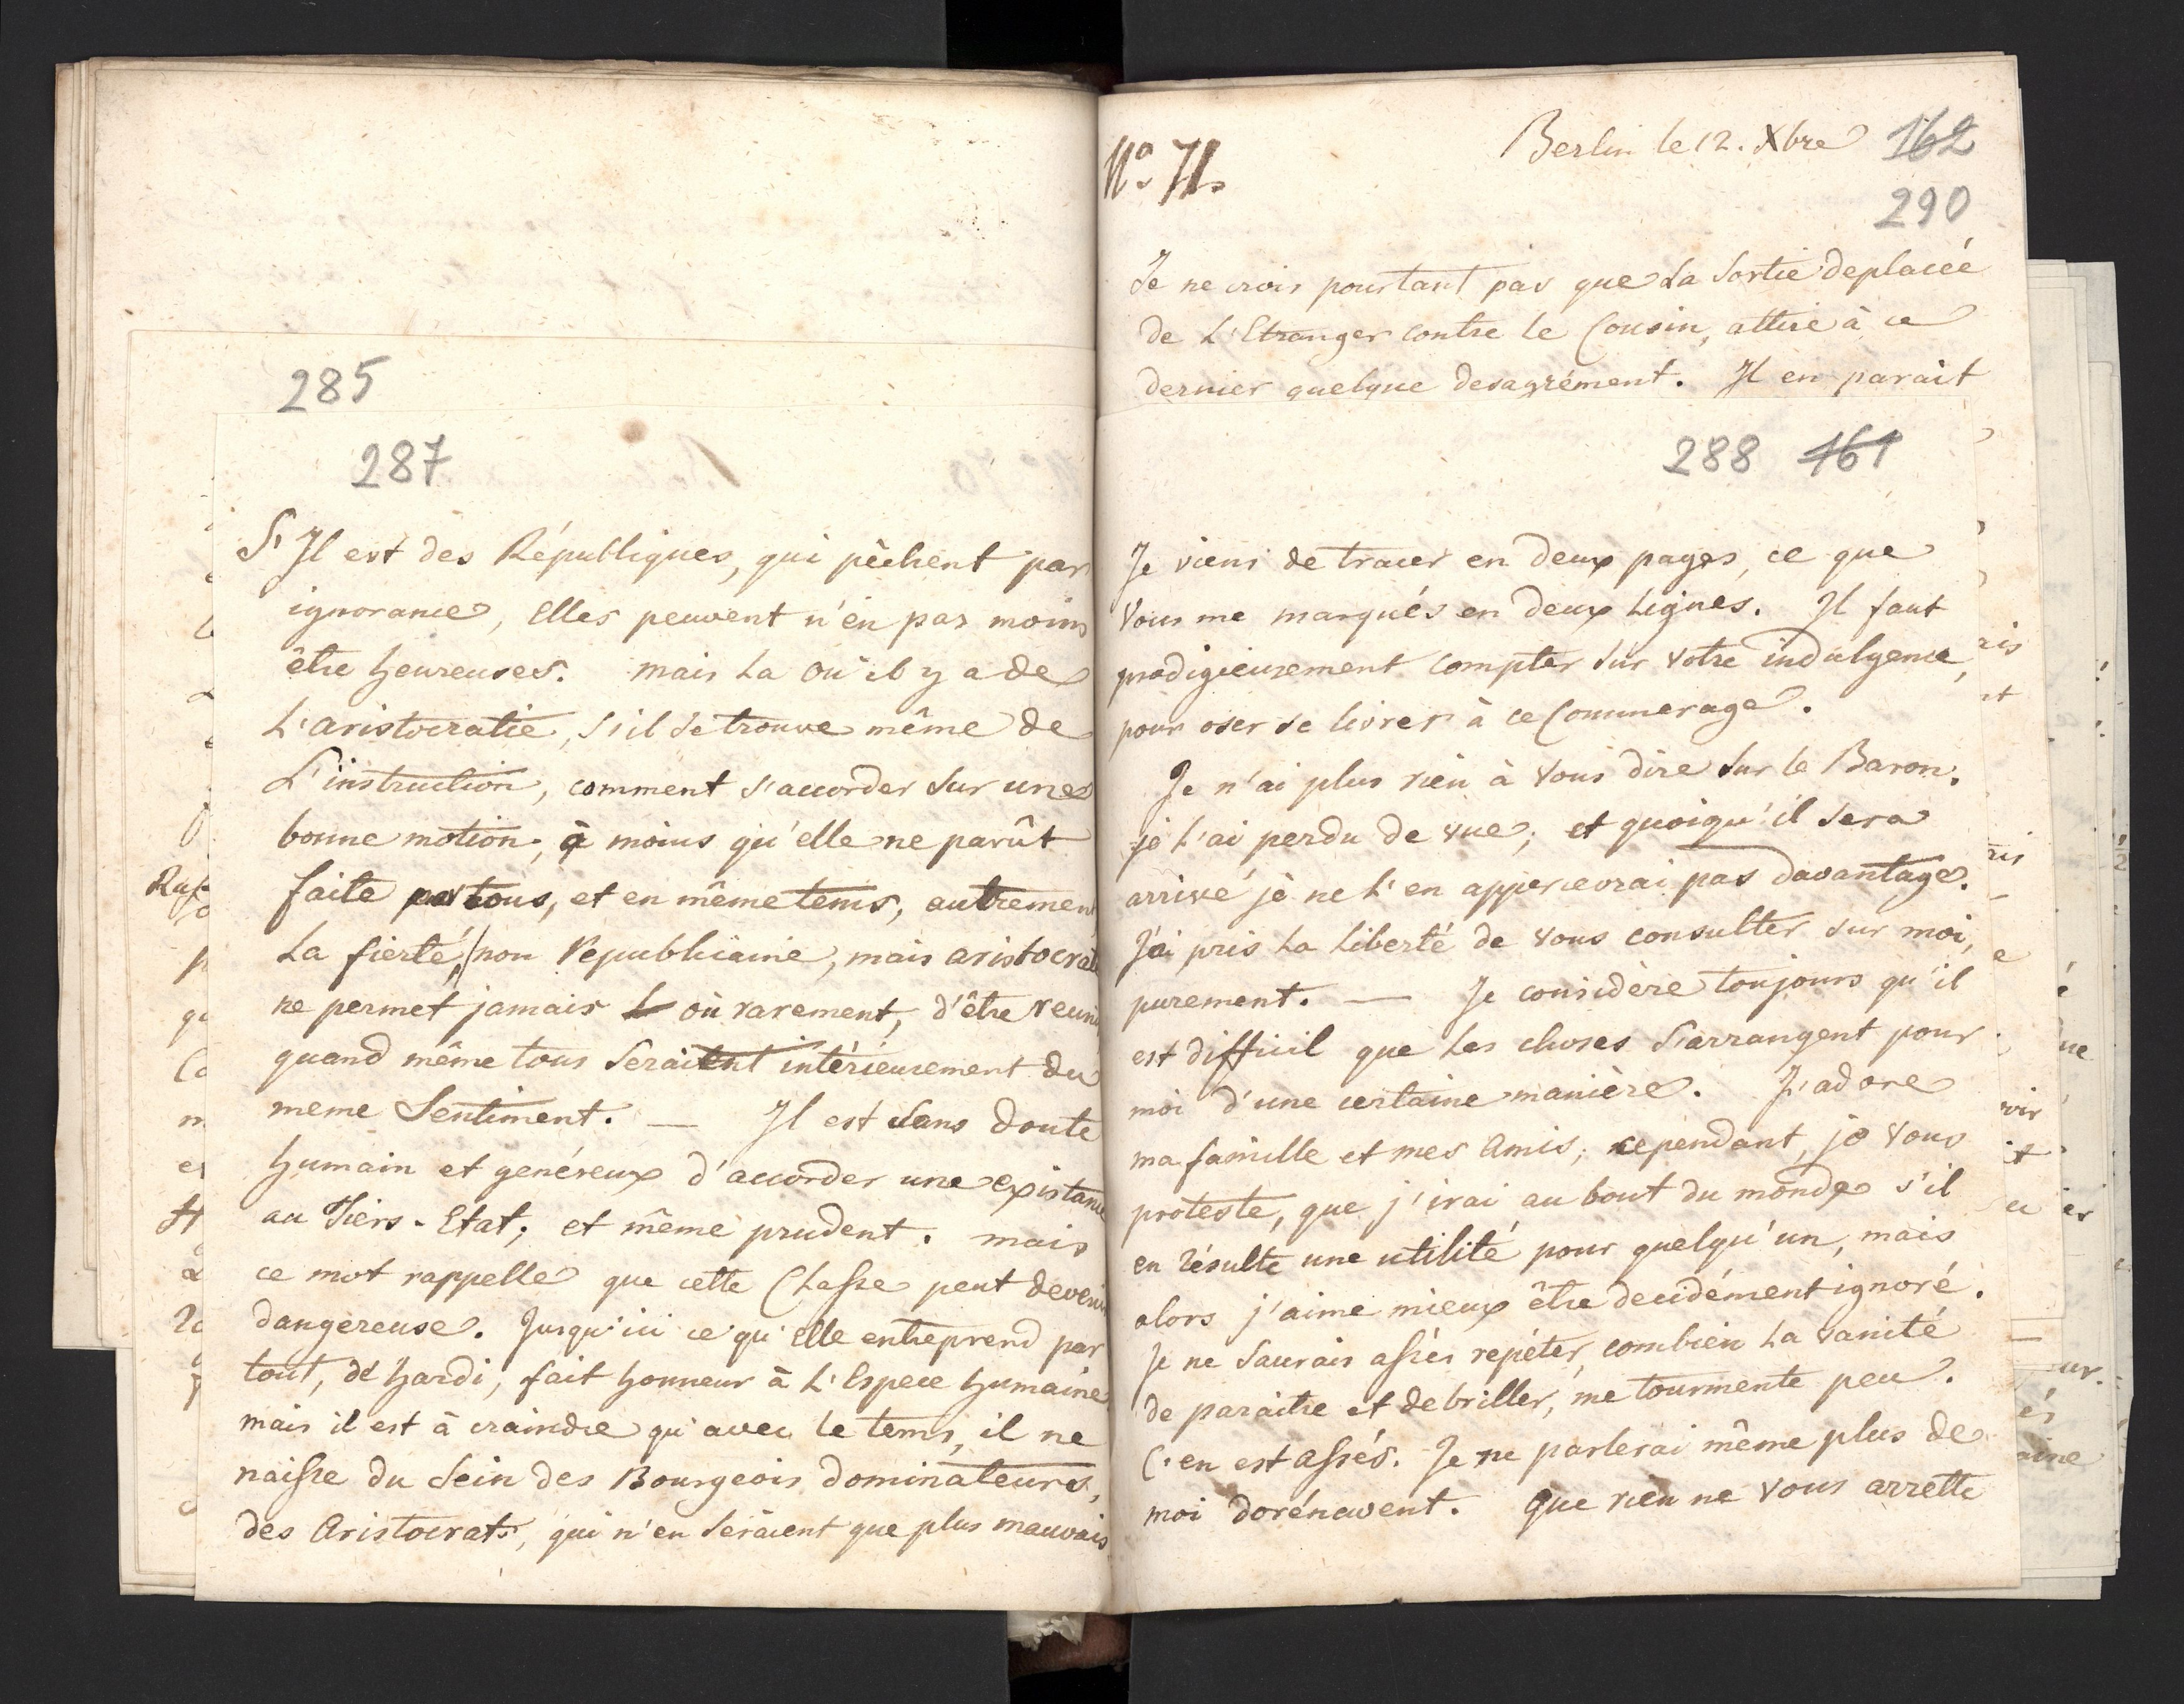 285
287
S'Jl est des Républiques, qui pêchent par
ignorance, Elles peuvent n'en pas moins
être heureuses. mais La où il y a de
L'aristocratie, s'il se trouve même de
L'instruction, comment s'accorder sur une
bonne motion, à moins qu'elle ne parût
faite par tous, et en même tems, autrement
La fierté, non republicaine, mais aristocrate
ne permet jamais où rarement, d'être reunis
quand même tous seraient intérieurement du
meme Sentiment. — Jl est sans doute
humain et genéreux d'accorder une existance
au Tiers-Etat, et même prudent. mais
ce mot rappelle que cette Classe peut devenir
dangereuse. Jusqu'ici ce qu'Elle entreprend par
tout, de hardi, fait honneur à L'Espece humaine
mais il est à craindre qu'avec le tems, il ne
naisse du sein des Bourgeois dominateurs,
des Aristocrats, qui n'en seraient que plus mauvais
No. 71.
Berlin le 12. Xbre 162
290
Je ne crois pourtant pas que La Sortie deplacée
de L'Etranger contre le Cousin, attire à ce
dernier quelque desagrément. Jl en parait
288 161
Je viens de tracer en deux pages, ce que
Vous me marqués en deux Lignes. Jl faut
prodigieusement compter sur votre indulgence,
pour oser se livrer à ce Commerage.
Je n'ai plus rien à Vous dire sur le Baron.
je L'ai perdu de vue; et quoiqu'il sera
arrivé je ne L'en appercevrai pas davantage.
J'ai pris La Liberté de Vous consulter sur moi,
purement. — Je considère toujours qu'il
est difficil que Les choses s'arrangent pour
moi d'une certaine manière. J'adore
ma famille et mes Amis; cependant, je Vous
proteste, que j'irai au bout du monde s'il
en résulte une utilité pour quelqu'un, mais
alors j'aime mieux être decidément ignoré.
Je ne saurais assés repéter, combien La vanité
de paraitre et de briller, me tourmente peu.
C'en est assés. Je ne parlerai même plus de
moi dorénavent. Que rien ne Vous arrette